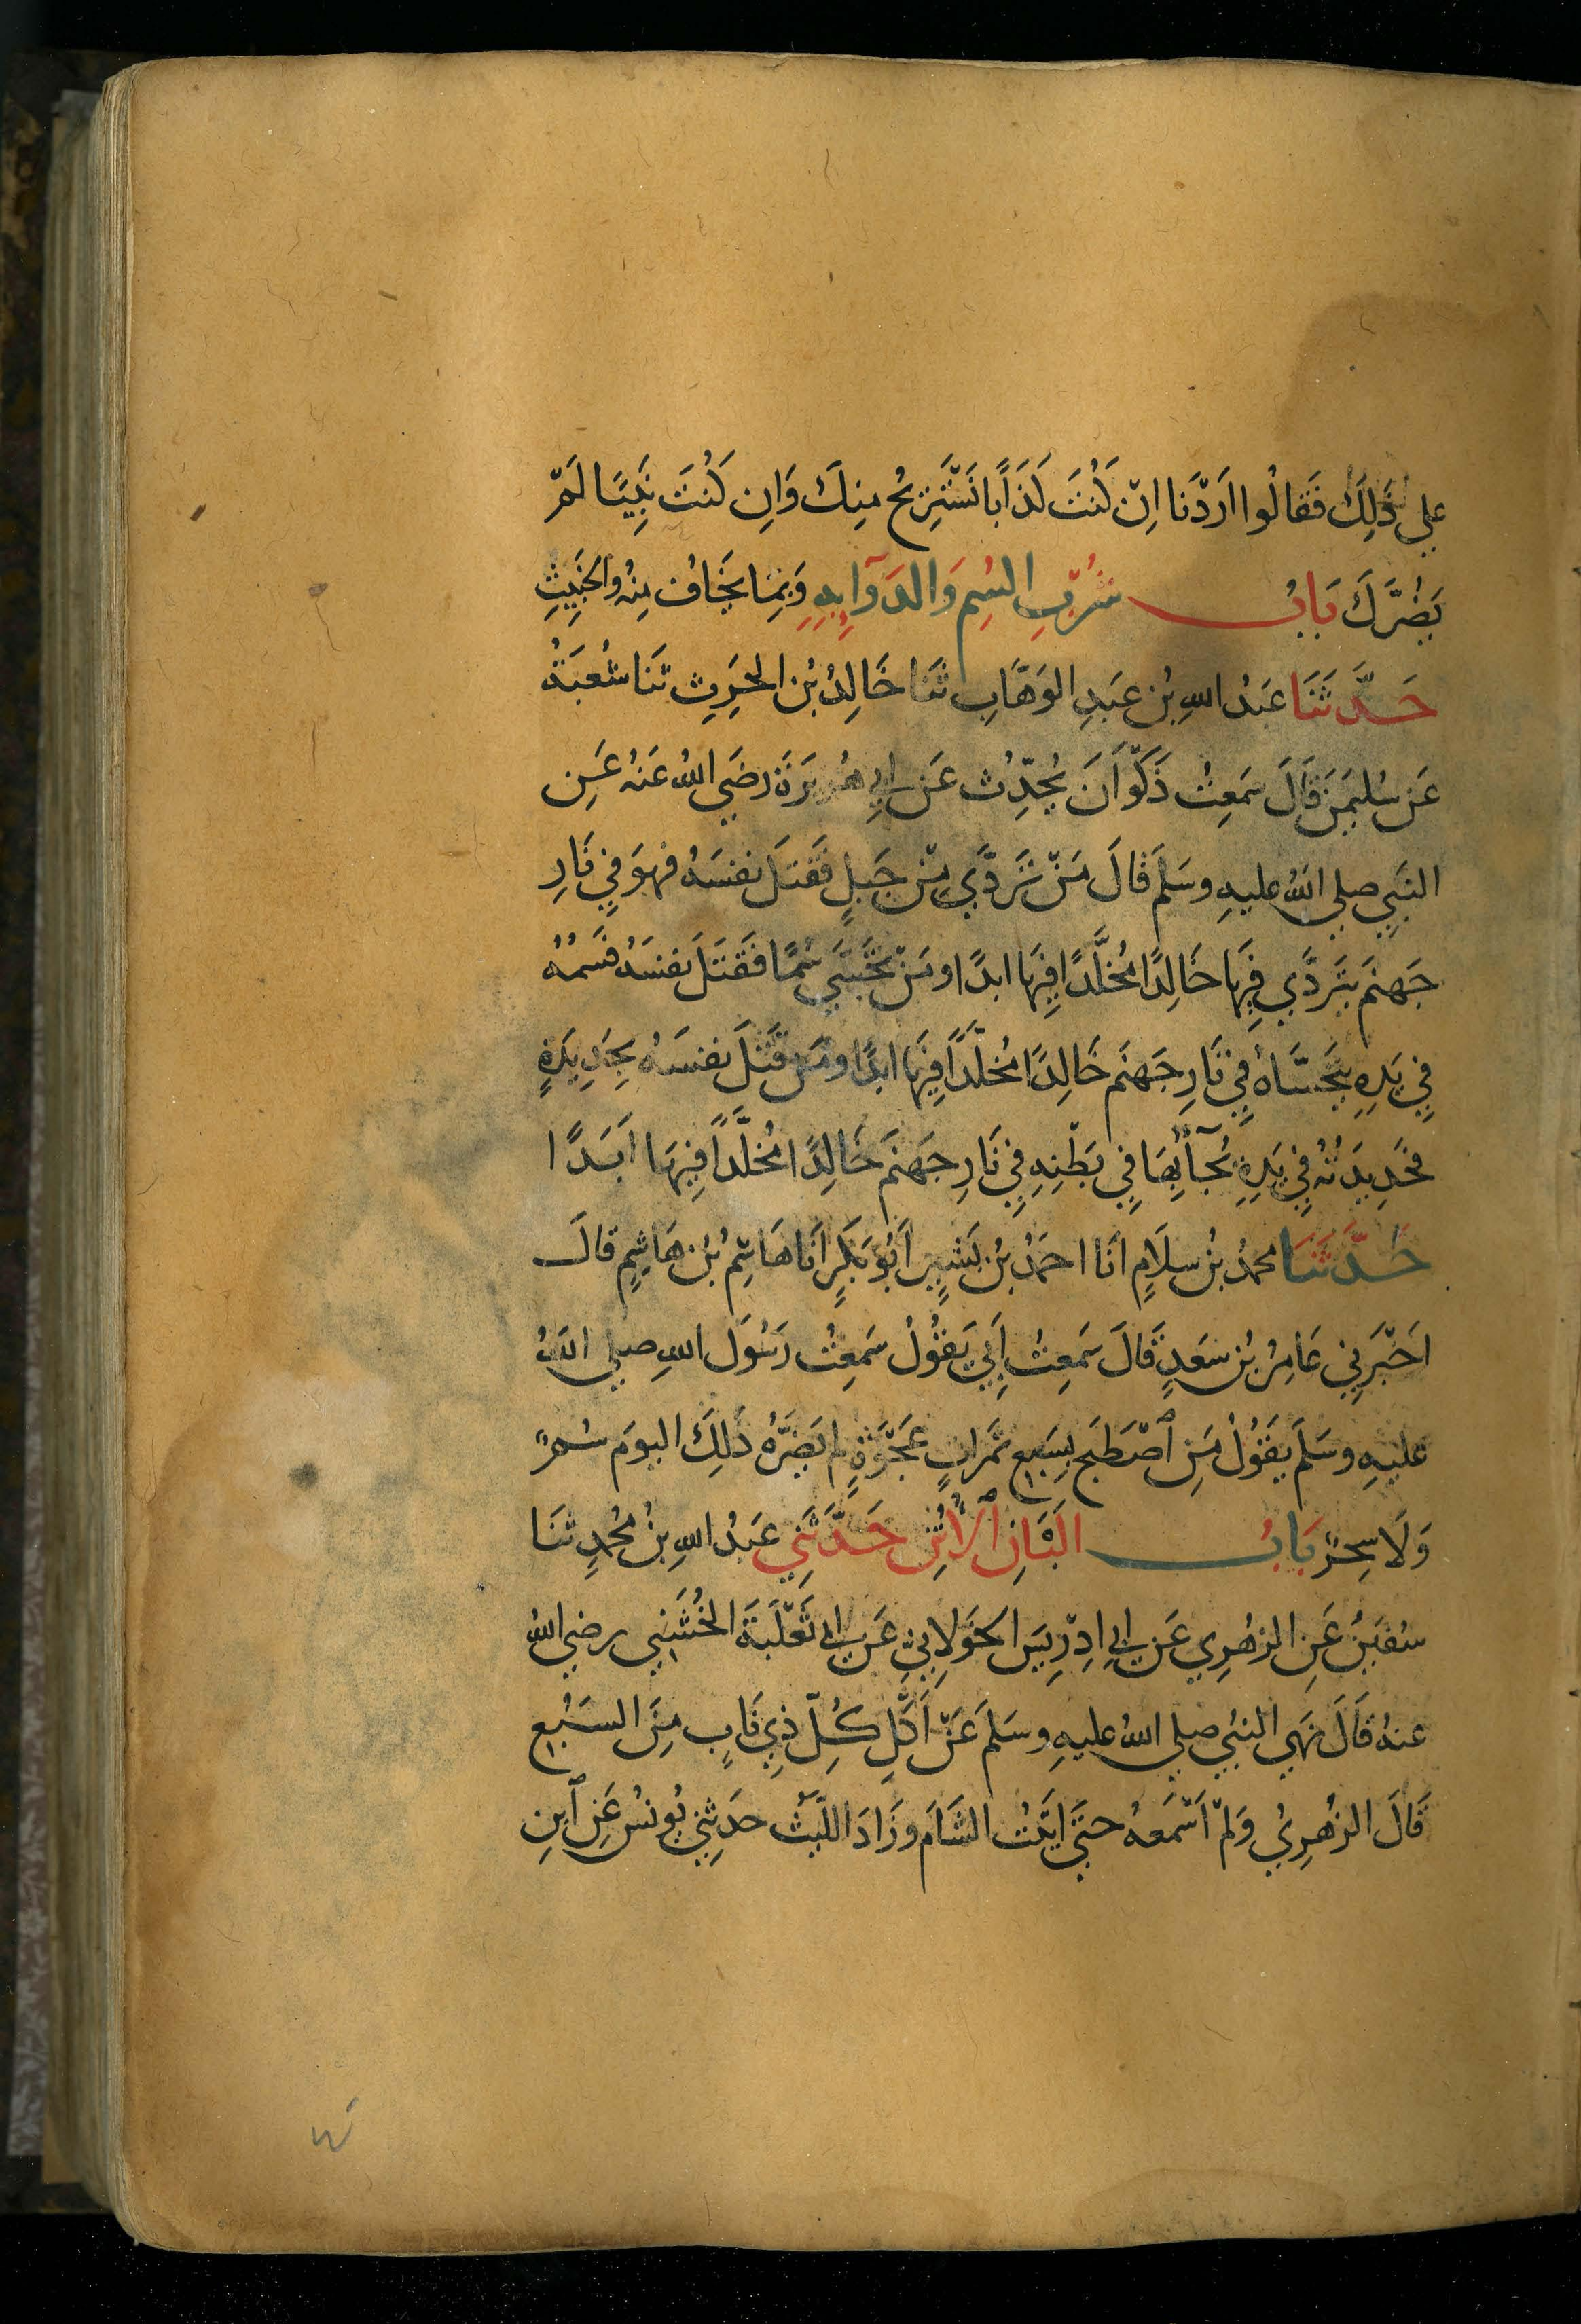 علي ذَلِكَ فَقالُوا اَرَدْنَا اِنْ كُنْتَ كَذَابًا نَسْتَرِيحُ مِنكَ وَاِن كُنتَ نَبِيًّا لَمْ
يَضُرَّكَ بَابُ شُرْبِ السُمِ وَالدَوَآءِ بِهِ وَبِمَا يُخَافُ مِنهُ والخَبِيثِ
حَدَّثَنَا عَبدُ اللهِ بْنُ عَبدِ الوَهَّابِ ثَنَا خَالِدُ بْنُ الحَرِثِ ثَنَا شُعبَةُ
عَن سُليمَنَ قَالَ سَمِعتُ ذَكْوَانَ يُحَدِّثُ عَن ابي هُرَيرَةَ رضَي اللهُ عَنهُ عَنِ
النبَيِ صلي اللهُ عليهِ وسَلمَ قَالَ مَنْ تَرَدَّي مِنْ جَبَلٍ فَقتَلَ نفسَهُ فهوَ فِي نَارِ
جَهنمَ يتَرَدَّي فِيهَا خَالِدًا مُخلَّدًا فِيهَا ابدًا ومَنْ تَحَسَّي سُمًا فَقَتَلَ نفسَهُ فَسُمُهُ
فِي يَدِهِ يتَحَسَّاهُ فِي نَارِ جَهنَم خَالِدًا مُخلَّدًا فِيهَا ابدًا ومَن قَتَلَ نفسَهُ بِحَدِيدَةٍ
فحَدِيدَتُهُ فِي يَدِهِ يُجَآئُ بِهَا فِي بَطْنِهِ فِي نَارِ جَهنمَ خَالِدًا مُخلَّدًا فِيهَا اَبَدًا
حَدَّثنَا محمدُ بْنُ سلَامٍ انَا احمَدُ بْنُ بَشيِرٍ اَبُو بَكرٍ اَنَا هَاشِمُ بْنُ هَاشِمٍ قالَ
اخَبَرَنِي عَامِرُ بْنُ سعَدٍ قَالَ سَمِعتُ اَبِي يَقوُلُ سَمِعتُ رَسُولَ اللهِ صلي اللهُ
عليهِ وسَلمَ يقَوُلُ مَنِ ٱصْطَبَح بِسَبعِ تمَراتٍ عَجْوَةٍ لم يَضرَّهُ ذَلِكَ اليومَ سُمٌ
وَلَا سِحرٌ بَابُ البَانِ ٱلاُتُنِ حَدَّثَنِي عَبدُ اللهِ بنُ مُحمدٍ ثنَا
سُفيَنُ عَنِ الزهُرِي عَن ابي اِدْرِيسَ الخَوَلاِنيِ عَن ابي ثَعْلَبَةَ الخُشَنِي رضي اللهُ
عنهُ قَالَ نهَي النبُي صلي اللهُ عليهِ وسَلمَ عَنْ اَكْلِ كُلِّ ذِي نَابٍ مِنَ السَبُعِ
قَالَ الزهُرِيُ وَلَمْ اَسْمَعهُ حتيَ اتيَتُ الشَامَ وزَادَ اللَيثُ حدَثِني يُونسُ عَنِ ٱبنِ